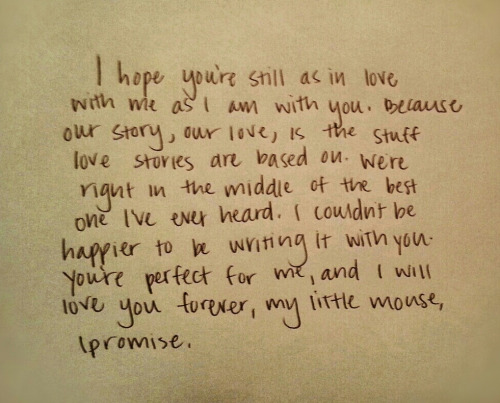 I hope you're still as in love
with me as I am with you. Because
our story, our love, is the stuff
love stories are based on. We're
right in the middle of the best
one I've ever heard. I couldn't be
happier to be writing it with you.
You're perfect for me, and I will
love you forever, my little mouse,
I promise.